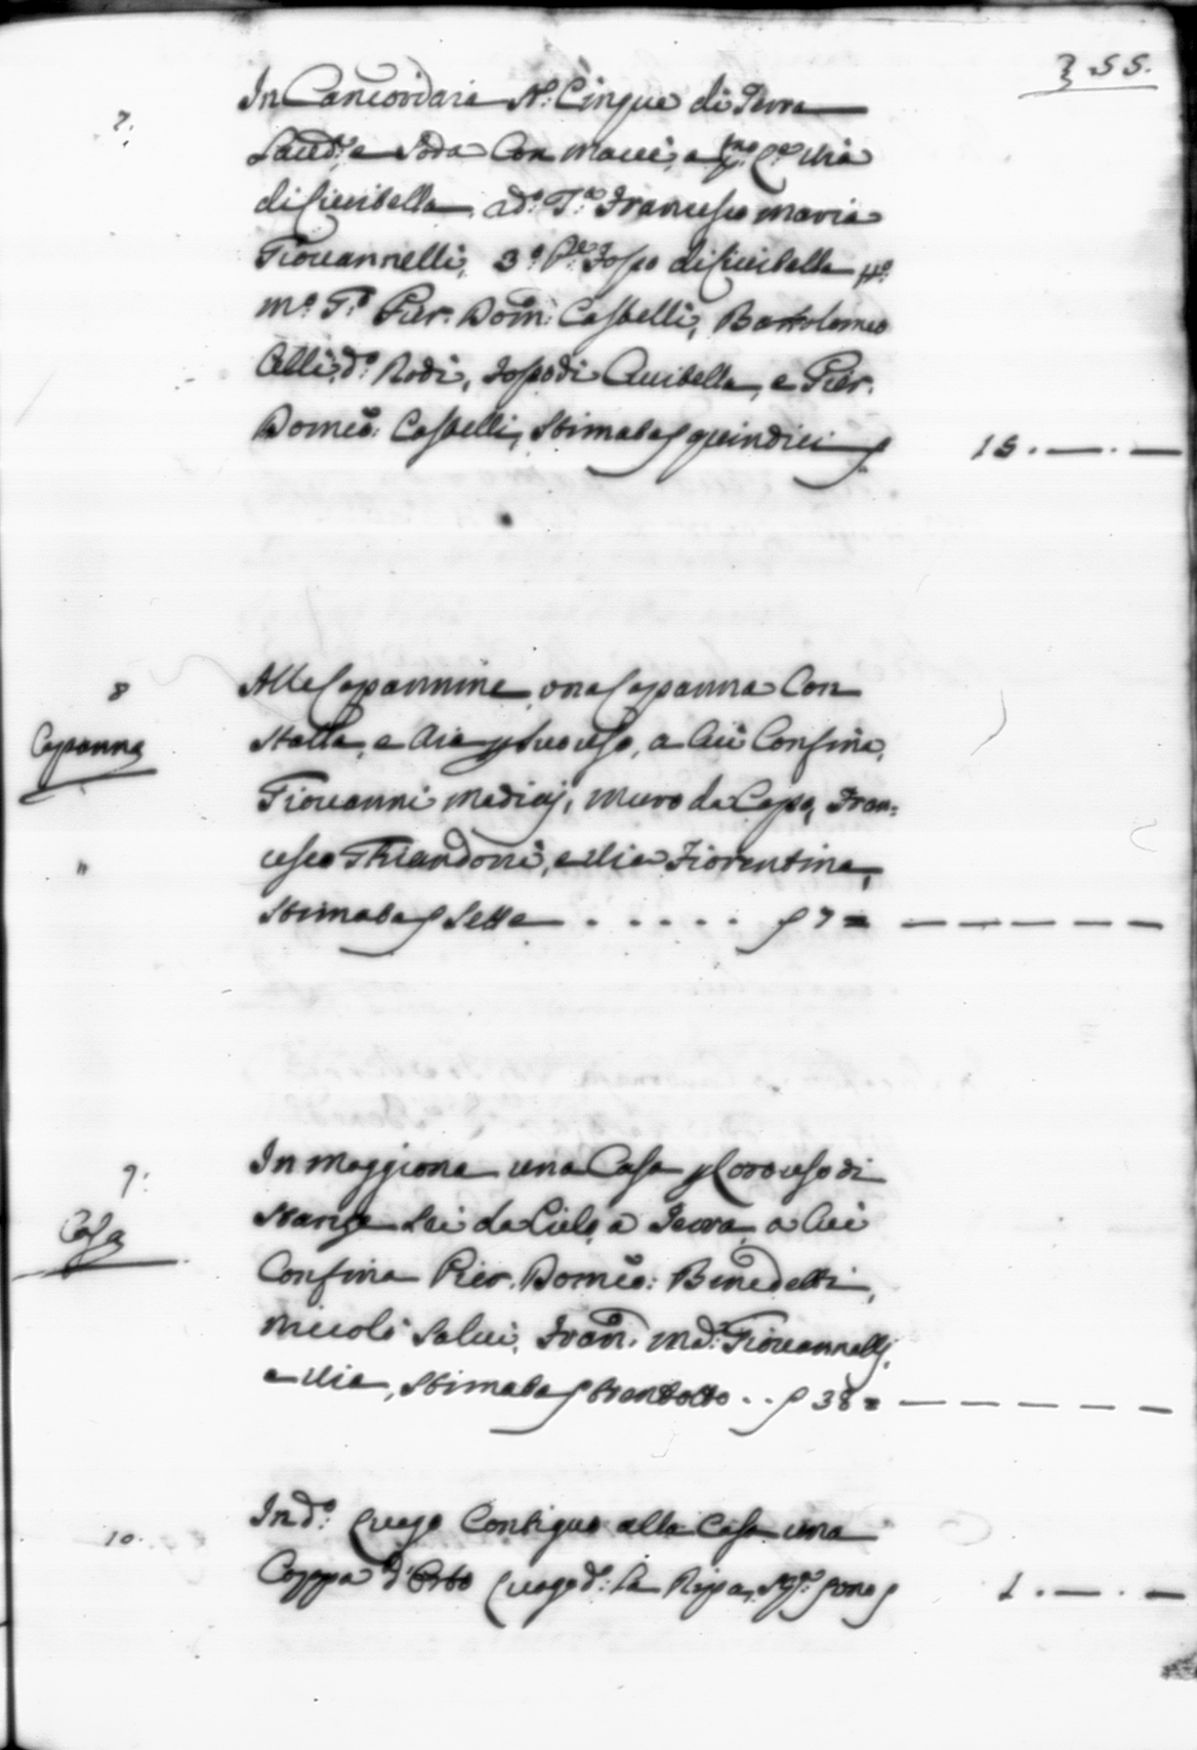 355.
7.
In Cancordara St: Cinque di Terra
Laud.ª e Soda Con macci, a p.mo C.º Via
di Civitella, ad.º T.ª Francesco Maria
Giovannelli, 3.º Fosso di Civitella 4.º
m.º T.º Pier. Dom: Castelli, Bartolomeo
Celli, d.º Rodi, Fosso di Civitella, e Pier.
Domco: Castelli, Stimata quindici
15.—.—
8
Capanna
Alle Capannine una Capanna Con
Stalla, e Aia p suo uso, a Cui Confina,
Giovanni Medicj, muro da Capo, Fran=
cesco Ghiandoni, e Via Fiorentina,
Stimata Sette . . . . . . 7 = — — — — —
9.
Casa
In Maggiona una Casa p Loro uso di
Stanze Sei da Cielo, a Terra, a Cui
Confina Pier. Domco: Benedetti,
Niccolò Salvi, Fran. Md.ª Giovannellj,
e Via, Stimata trentotto . . 38 = — — — — —
10.
In d.º Luogo Contiguo alla Casa una
Coppa d'Orto Luogo d.º La Ripa,
1.—.—